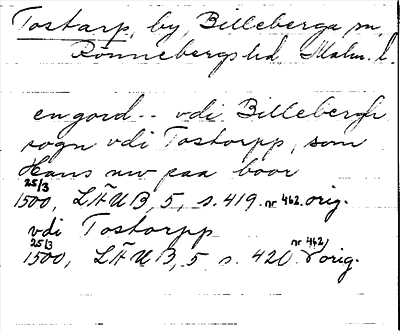 Tostarp, by, Billeberga sn,
Rönnebergs hd Malm. l.
en gord -- vdi Billebergh
sogn vdi Tostorpp, som
Hans nw paa boor
25/3
1500, LÄUB, 5, s. 419. nr 462. orig.
vdi Tostorpp
25/3
1500, LÄUB, 5 s. 420. nr 462/ orig.